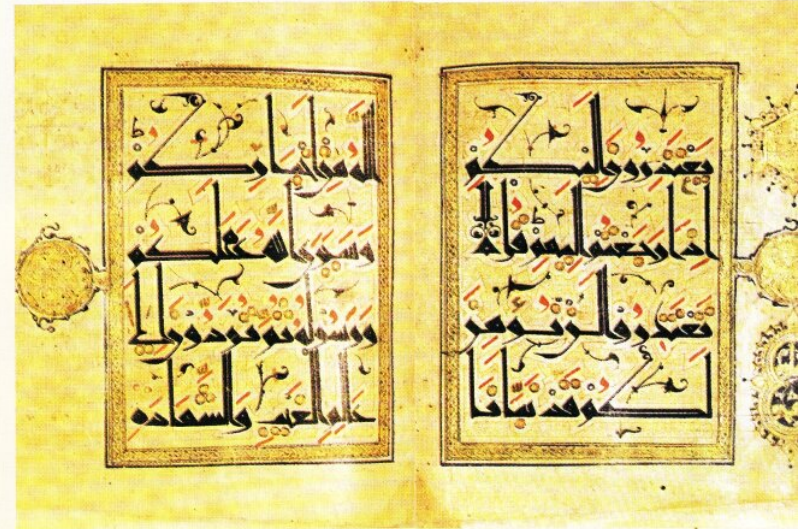 يعتذرون إليكم
إذا رجعتم إليهم قل لا
تعتذروا لن نؤمن
لكم قد نبأنا
الله من أخباركم
وسيرى الله عملكم
ورسوله ثم تردون إلى
عالم الغيب والشهادة